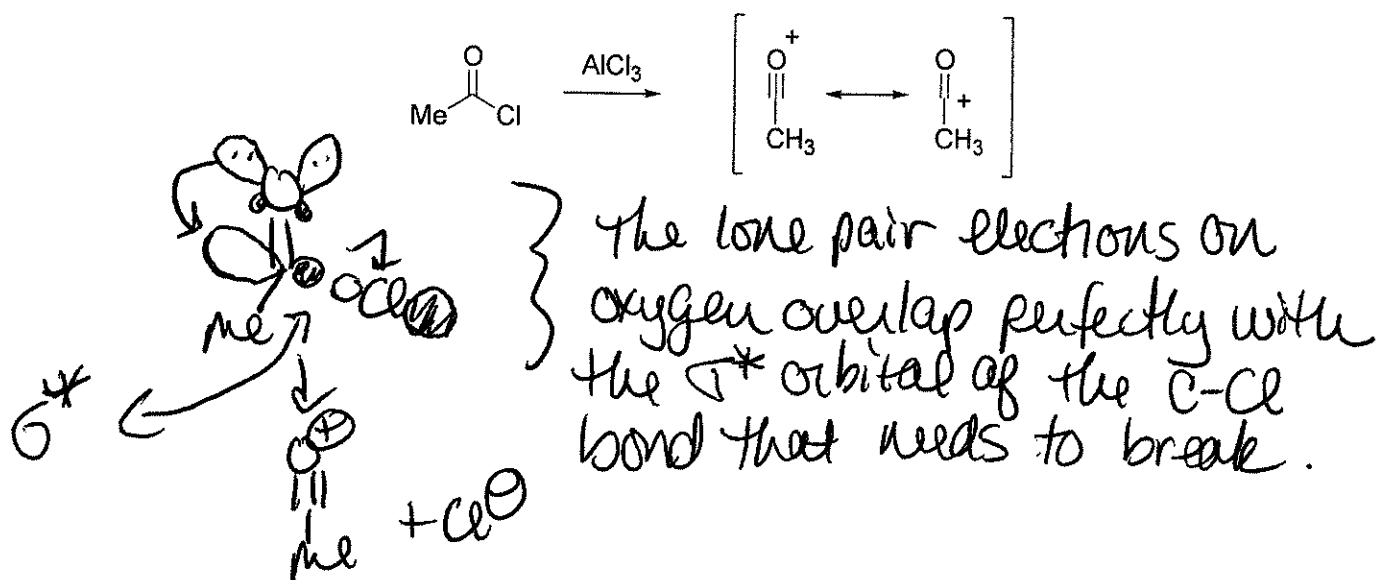 O
Me
Cl
AlCl3
+
O
CH3
O
+
CH3
The lone pair electrons on
oxygen overlap perfectly with
the σ* orbital of the C-Cl
bond that needs to break.
Cl
Me
σ*
+
O
Me
+ Cl⊖